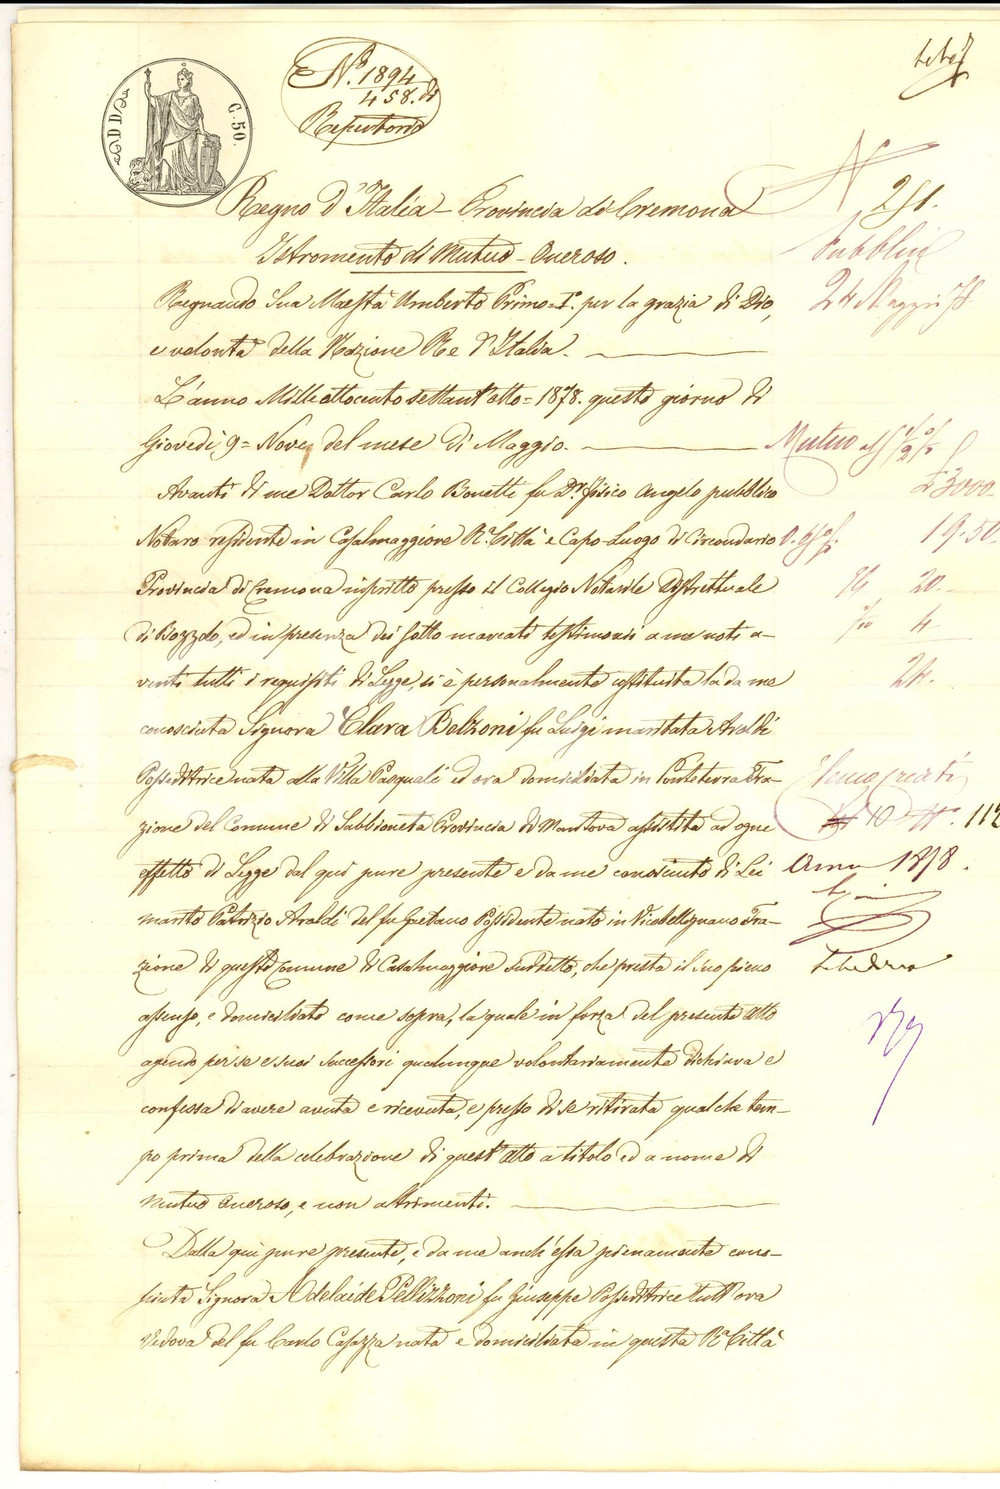 N.° 1894
458. di
Repertorio
C. 50.
Regno d'Italia - Provincia di Cremona
Istromento di Mutuo - Oneroso.
Regnando Sua Maestà Umberto Primo = I°. per la grazia di Dio,
e volontà della Nazione Re d'Italia.
L'anno Mille ottocento settant'otto = 1878. questo giorno di
Giovedì 9 = Nove, del mese di Maggio.
Avanti di me Dottor Carlo Bonetti fu D.r fisico Angelo pubblico
Notaro residente in Casalmaggiore R.a Città e Capo-Luogo di Circondario
Provincia di Cremona inscritto presso il Collegio Notarile Distrettuale
di Bozzolo, ed in presenza dei sotto marcati testimonii a me noti a-
venti tutti i requisiti di Legge, si è personalmente costituita la da me
conosciuta Signora Clara Belzoni fu Luigi maritata Araldi
Possiditrice nata alla Villa Pasquali ed ora domiciliata in Ponteterra Fra-
zione del Comune di Sabbioneta Provincia di Mantova assistita ad ogni
effetto di Legge dal qui pure presente e da me conosciuto di Lei
marito Patrizio Araldi del fu Gaetano Possidente nato in Vicobellignano Fra-
zione di questo Comune di Casalmaggiore suddetto, che presta il suo pieno
assenso, e domiciliato come sopra, la quale in forza del presente atto
agendo per se e suoi successori qualunque volontariamente dichiara e
confessa di avere avuta e ricevuta, e presso di se ritirata qualche tem-
po prima della celebrazione di quest'atto a titolo ed a nome di
Mutuo Oneroso, e non altrimenti.
Dalla qui pure presente, e da me anch'essa pienamente cono-
sciuta Signora Adelaide Pellizzoni fu Giuseppe Possiditrice tutt'ora
Vedova del fu Carlo Casazza nata e domiciliata in questa R.a Città
N 251.
Pubblici
24 Maggio 78
Mutuo
£ 3000
19.50
20.
4
24.
10
112
Anno 1878.